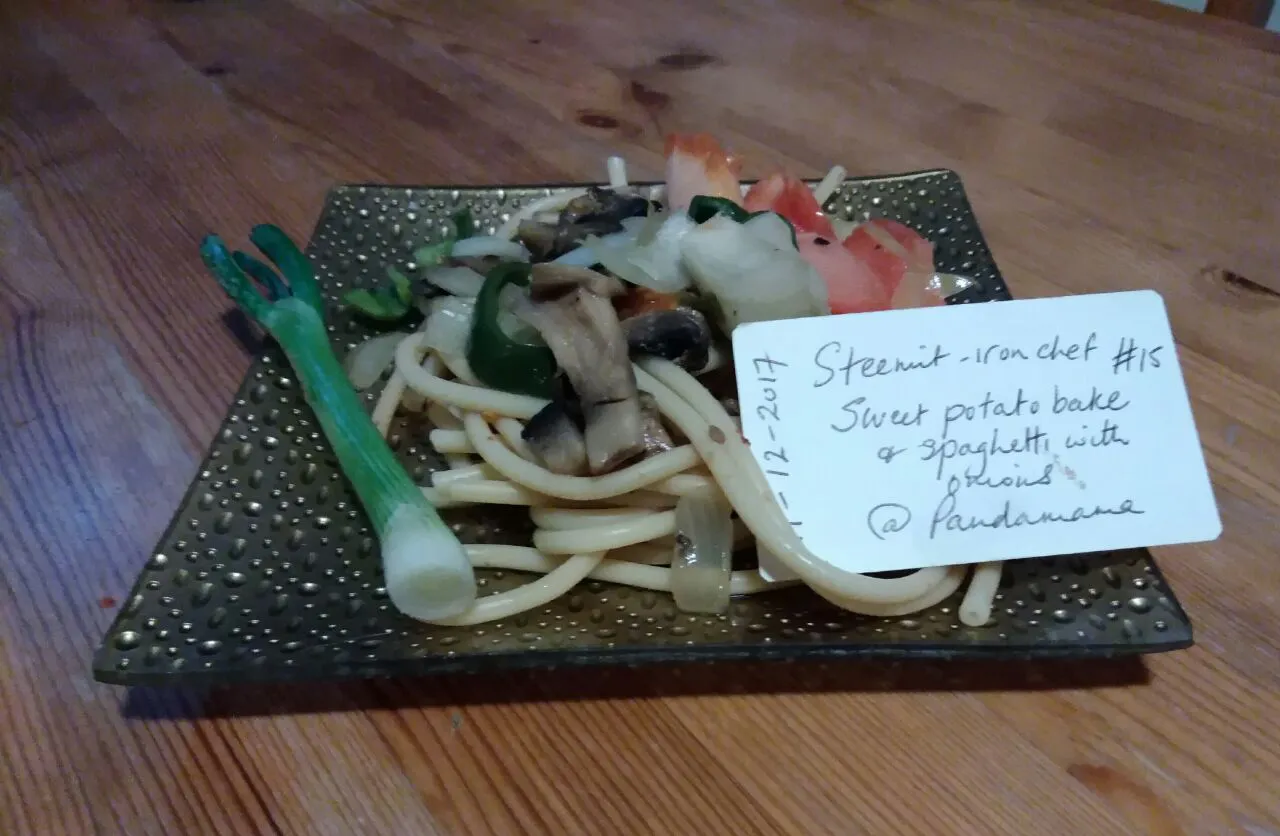 Steemit - iron chef #15
Sweet potato bake
& spaghetti with
onions
@ Pandamama
-12-2017